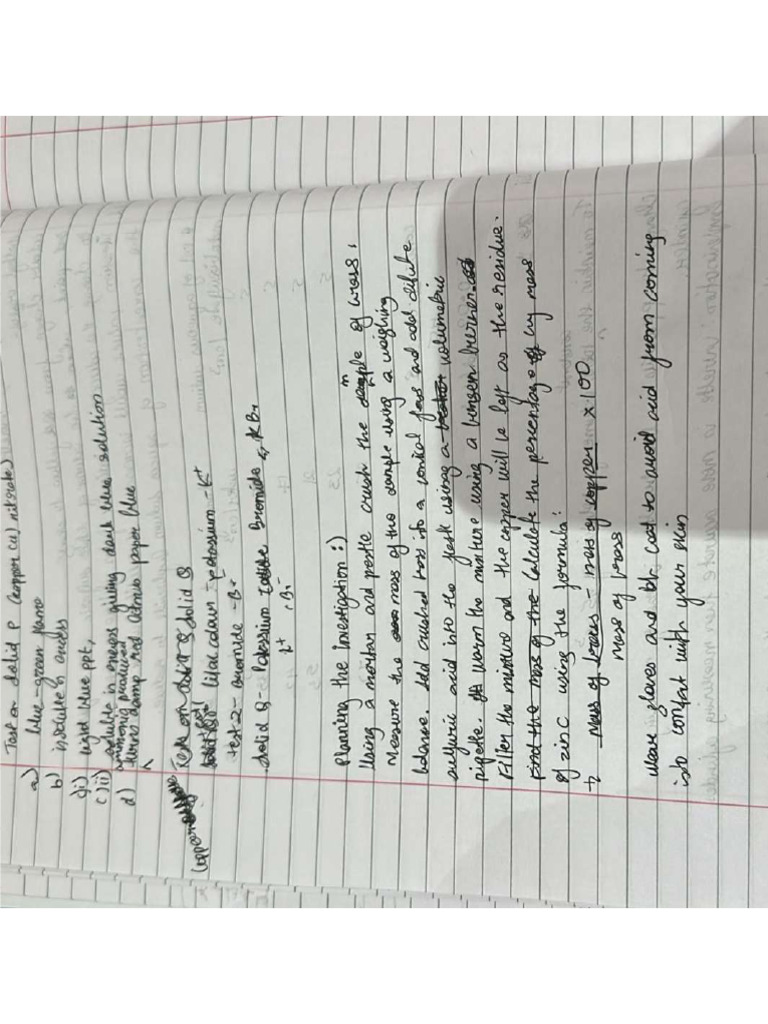 Test on solid P (copper (II) nitrate)
a) blue-green flame
b) insoluble in excess
c)i) light blue ppt,
c)ii) soluble in excess giving dark blue solution
d) ammonia produced
turns damp red litmus paper blue
Tests on solid Q
test 1 lilac colour - potassium - K+
test-2- Bromide - Br-
Solid Q - Potassium Bromide KBr
Br-
Planning the investigation :)
Using a mortar and pestle crush the sample of brass,
Measure the mass of the sample using a weighing
balance. Add crushed brass into a conical flask and add dilute
sulfuric acid into the flask using a volumetric
pipette. Warm the mixture using a bunsen burner.
Filter the mixture and the copper will be left as the residue.
find the mass of the Calculate the percentage by mass
of zinc using the formula:
Mass of brass - mass of copper × 100
mass of brass
Wear gloves and coat to avoid acid from coming
into contact with your skin